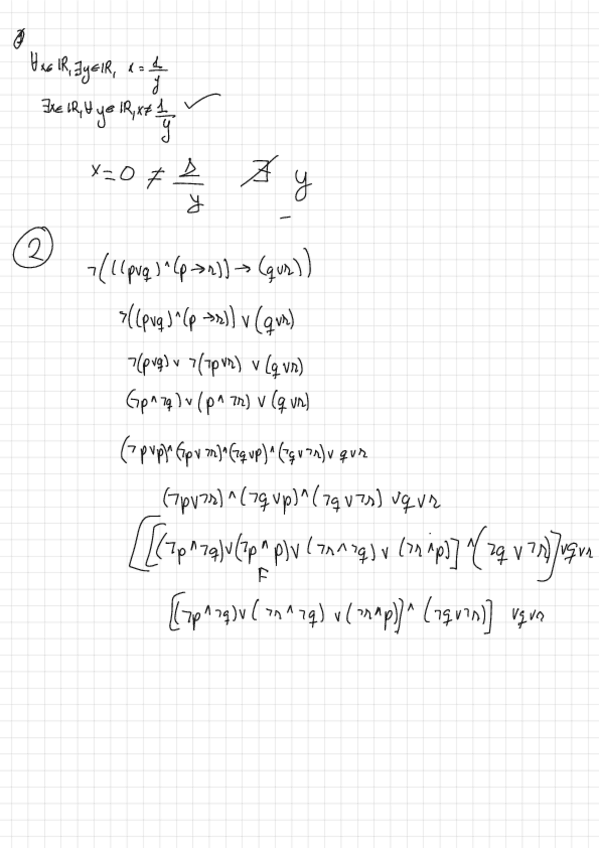 ∀x∈ℝ, ∃y∈ℝ, x = 1/y
∃x∈ℝ, ∀y∈ℝ, x ≠ 1/y ✓
x = 0 ≠ 1/y ∄ y
②
¬(((p∨q)∧(p→r))→(q∨r))
¬((p∨q)∧(p→r))∨(q∨r)
¬(p∨q)∨¬(¬p∨r)∨(q∨r)
(¬p∧¬q)∨(p∧¬r)∨(q∨r)
(¬p∨p)∧(¬p∨¬r)∧(¬q∨p)∧(¬q∨¬r)∨q∨r
(¬p∨¬r)∧(¬q∨p)∧(¬q∨¬r)∨q∨r
[[(¬p∧¬q)∨(¬p∧p)∨(¬r∧¬q)∨(¬r∧p)]∧(¬q∨¬r)]∨q∨r
F
[(¬p∧¬q)∨(¬r∧¬q)∨(¬r∧p)]∧(¬q∨¬r)] ∨q∨r